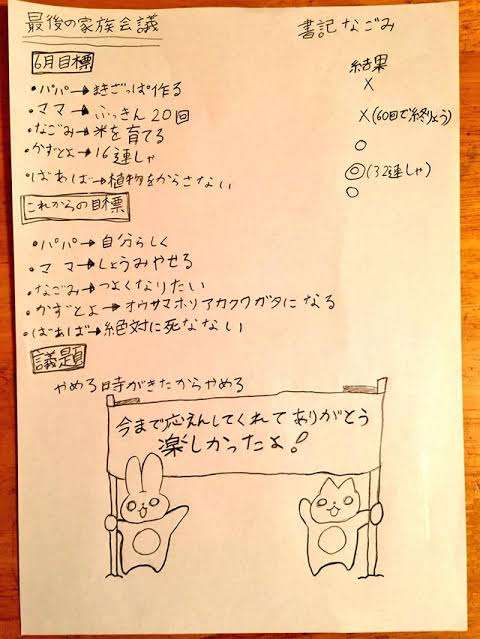 最後の家族会議 書記なごみ
6月目標 結果
・パパ→まきごっぱ作る ×
・ママ→ふっきん20回 ×(60回で終りょう)
・なごみ→米を育てる ○
・かずとよ→16連しゃ ◎(32連しゃ)
・ばあば→植物をからさない ○
これからの目標
・パパ→自分らしく
・ママ→しょうみやせる
・なごみ→つよくなりたい
・かずとよ→オウサマホソアカクワガタになる
・ばあば→絶対に死なない
議題
やめる時がきたからやめる
今まで応えんしてくれてありがとう
楽しかったよ!